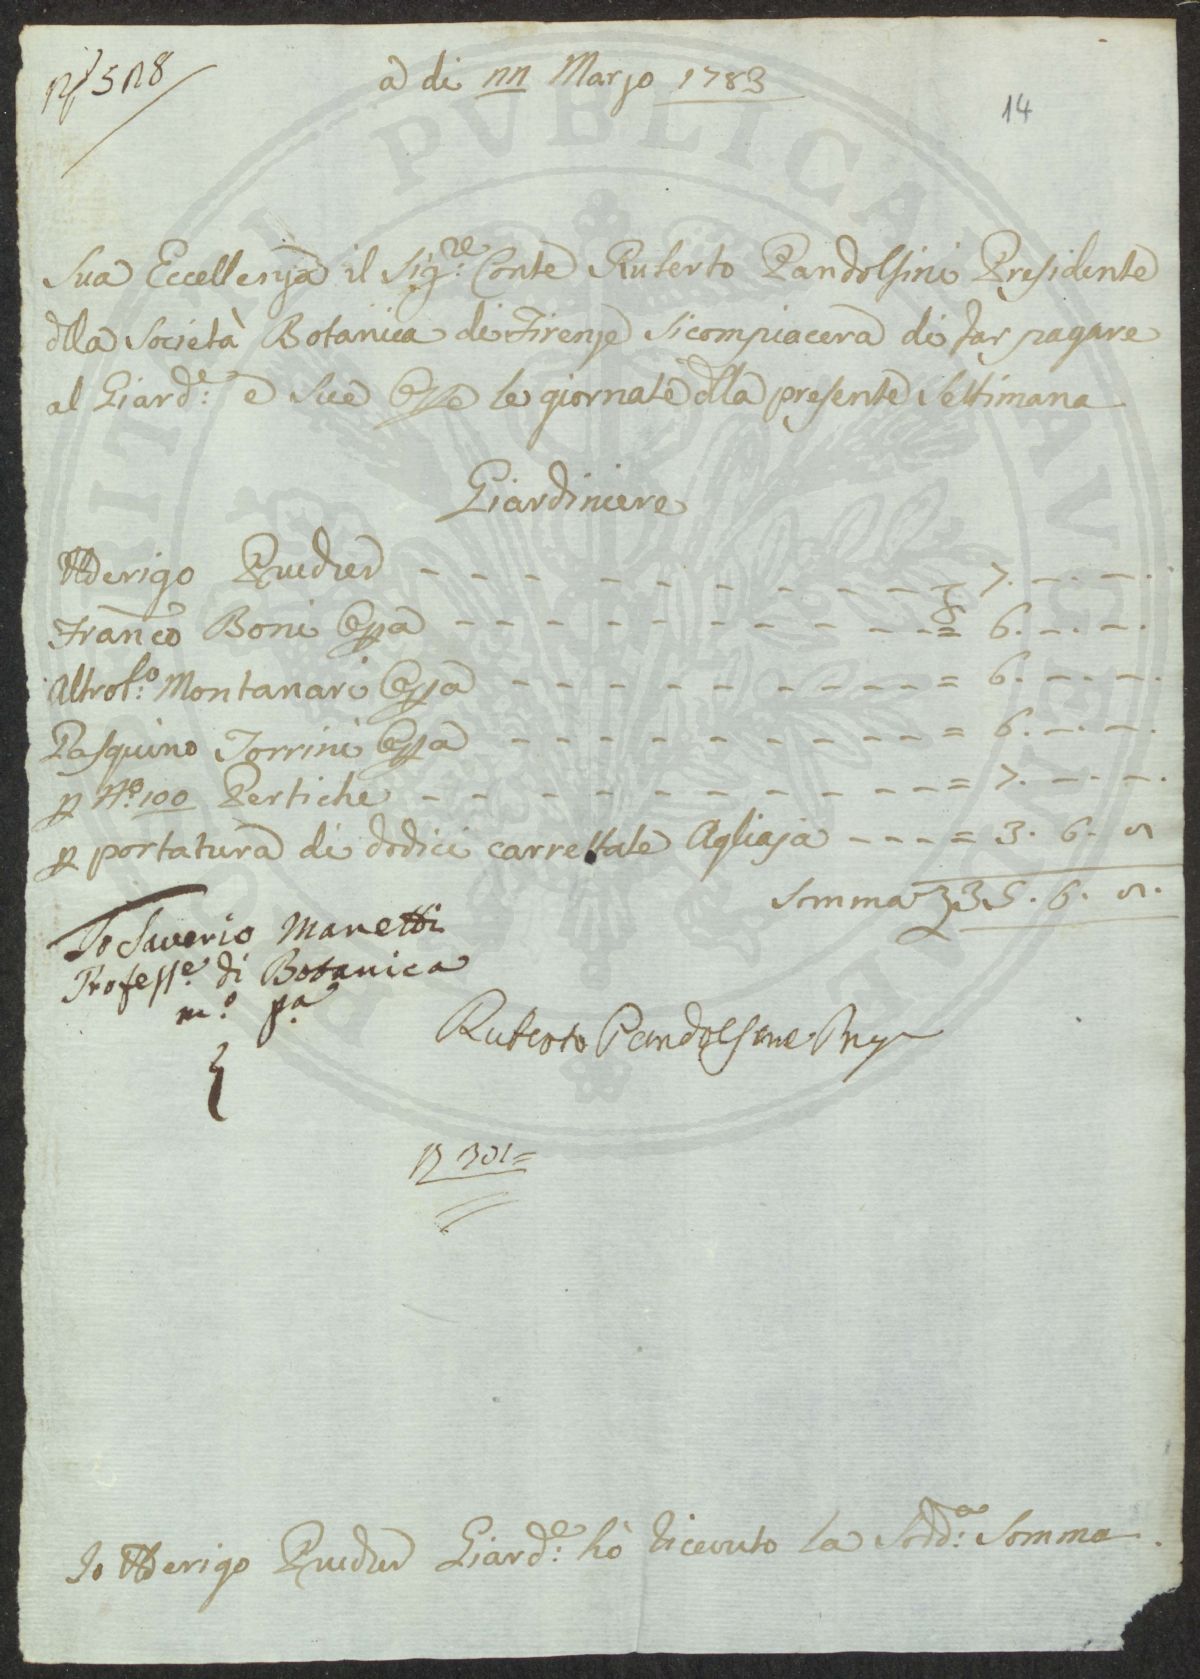 a di 22 Marzo 1783
14
Sua Eccellenza il Sig:re Conte Ruberto Pandolfini Presidente
dlla Società Botanica di Firenze si compiacerà di far pagare
al Giard:e e Sue Opre le giornate dlla presente Settimana
Giardiniere
- - - - - - - - - - - 7. -. -.
Franco Boni Opra - - - - - - - - - - = 6. -. -.
Montanari Opra - - - - - - - - - = 6. -. -.
Pasquino Torrini Opra - - - - - - - - - = 6. -. -.
p No 100 Pertiche - - - - - - - - - - = 7. -. -.
p portatura di dodici carrettate Agliaja - - - - = 3. 6. 8
Somma 35. 6. 8.
Io Saverio Manetti
Profess:e di Botanica
m:o pa
Ruberto Pandolfini
301=
Giard:e hò riceuto la Sodd:a Somma